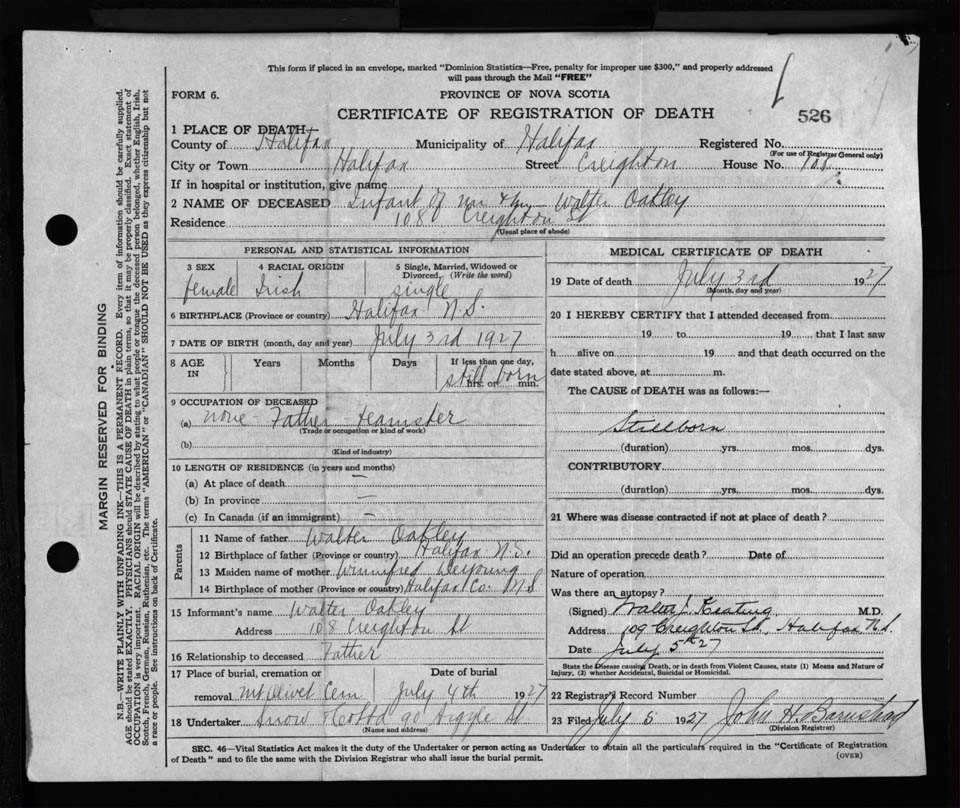 This form if placed in an envelope, marked "Dominion Statistics—Free, penalty for improper use $300," and properly addressed
will pass through the Mail "FREE"
FORM 6.
PROVINCE OF NOVA SCOTIA
CERTIFICATE OF REGISTRATION OF DEATH
526
1 PLACE OF DEATH—
County of Halifax Municipality of Halifax Registered No.
(For use of Registrar General only)
City or Town Halifax Street Creighton House No. 108
If in hospital or institution, give name
2 NAME OF DECEASED Infant of Mr & Mrs Walter Oakley
Residence 108 Creighton St
(Usual place of abode)
PERSONAL AND STATISTICAL INFORMATION
3 SEX
female
4 RACIAL ORIGIN
Irish
5 Single, Married, Widowed or
Divorced. (Write the word)
single
6 BIRTHPLACE (Province or country) Halifax N.S.
7 DATE OF BIRTH (month, day and year) July 3rd 1927
8 AGE
IN
Years
Months
Days
If less than one day,
still born
hrs. or min.
9 OCCUPATION OF DECEASED
(a) none - Father - teamster
(Trade or occupation or kind of work)
(b)
(Kind of industry)
10 LENGTH OF RESIDENCE (in years and months)
(a) At place of death —
(b) In province —
(c) In Canada (if an immigrant) —
Parents
11 Name of father Walter Oakley
12 Birthplace of father (Province or country) Halifax N.S.
13 Maiden name of mother Winnifred Deyoung
14 Birthplace of mother (Province or country) Halifax Co. N S
15 Informant's name Walter Oakley
Address 108 Creighton St
16 Relationship to deceased Father
17 Place of burial, cremation or
removal Mt Olivet Cem
Date of burial
July 4th 1927
18 Undertaker Snow 90 Argyle St
(Name and address)
MEDICAL CERTIFICATE OF DEATH
19 Date of death July 3rd 1927
(Month, day and year)
20 I HEREBY CERTIFY that I attended deceased from
19 to 19 that I last saw
h alive on 19 and that death occurred on the
date stated above, at m.
The CAUSE of DEATH was as follows:—
Stillborn
(duration) yrs. mos. dys.
CONTRIBUTORY
(duration) yrs. mos. dys.
21 Where was disease contracted if not at place of death?
Did an operation precede death? Date of
Nature of operation
Was there an autopsy?
(Signed) Walter J. Keating M.D.
Address 109 Creighton St, Halifax N.S.
Date July 5th 27
State the Disease causing Death, or in death from Violent Causes, state (1) Means and Nature of
Injury, (2) whether Accidental, Suicidal or Homicidal.
22 Registrar's Record Number
23 Filed July 5 1927 John H. Barnstead
(Division Registrar)
SEC. 46—Vital Statistics Act makes it the duty of the Undertaker or person acting as Undertaker to obtain all the particulars required in the "Certificate of Registration
of Death" and to file the same with the Division Registrar who shall issue the burial permit.
(OVER)
MARGIN RESERVED FOR BINDING
N.B.—WRITE PLAINLY WITH UNFADING INK—THIS IS A PERMANENT RECORD. Every item of information should be carefully supplied.
AGE should be stated EXACTLY. PHYSICIANS should STATE CAUSE OF DEATH in plain terms, so that it may be properly classified. Exact statement of
OCCUPATION is very important. RACIAL ORIGIN will be described by stating to what people or tongue the deceased person belonged, whether English, Irish,
Scotch, French, German, Russian, Ruthenian, etc. The terms "AMERICAN" or "CANADIAN" SHOULD NOT BE USED as they express citizenship but not
a race or people. See instructions on back of Certificate.